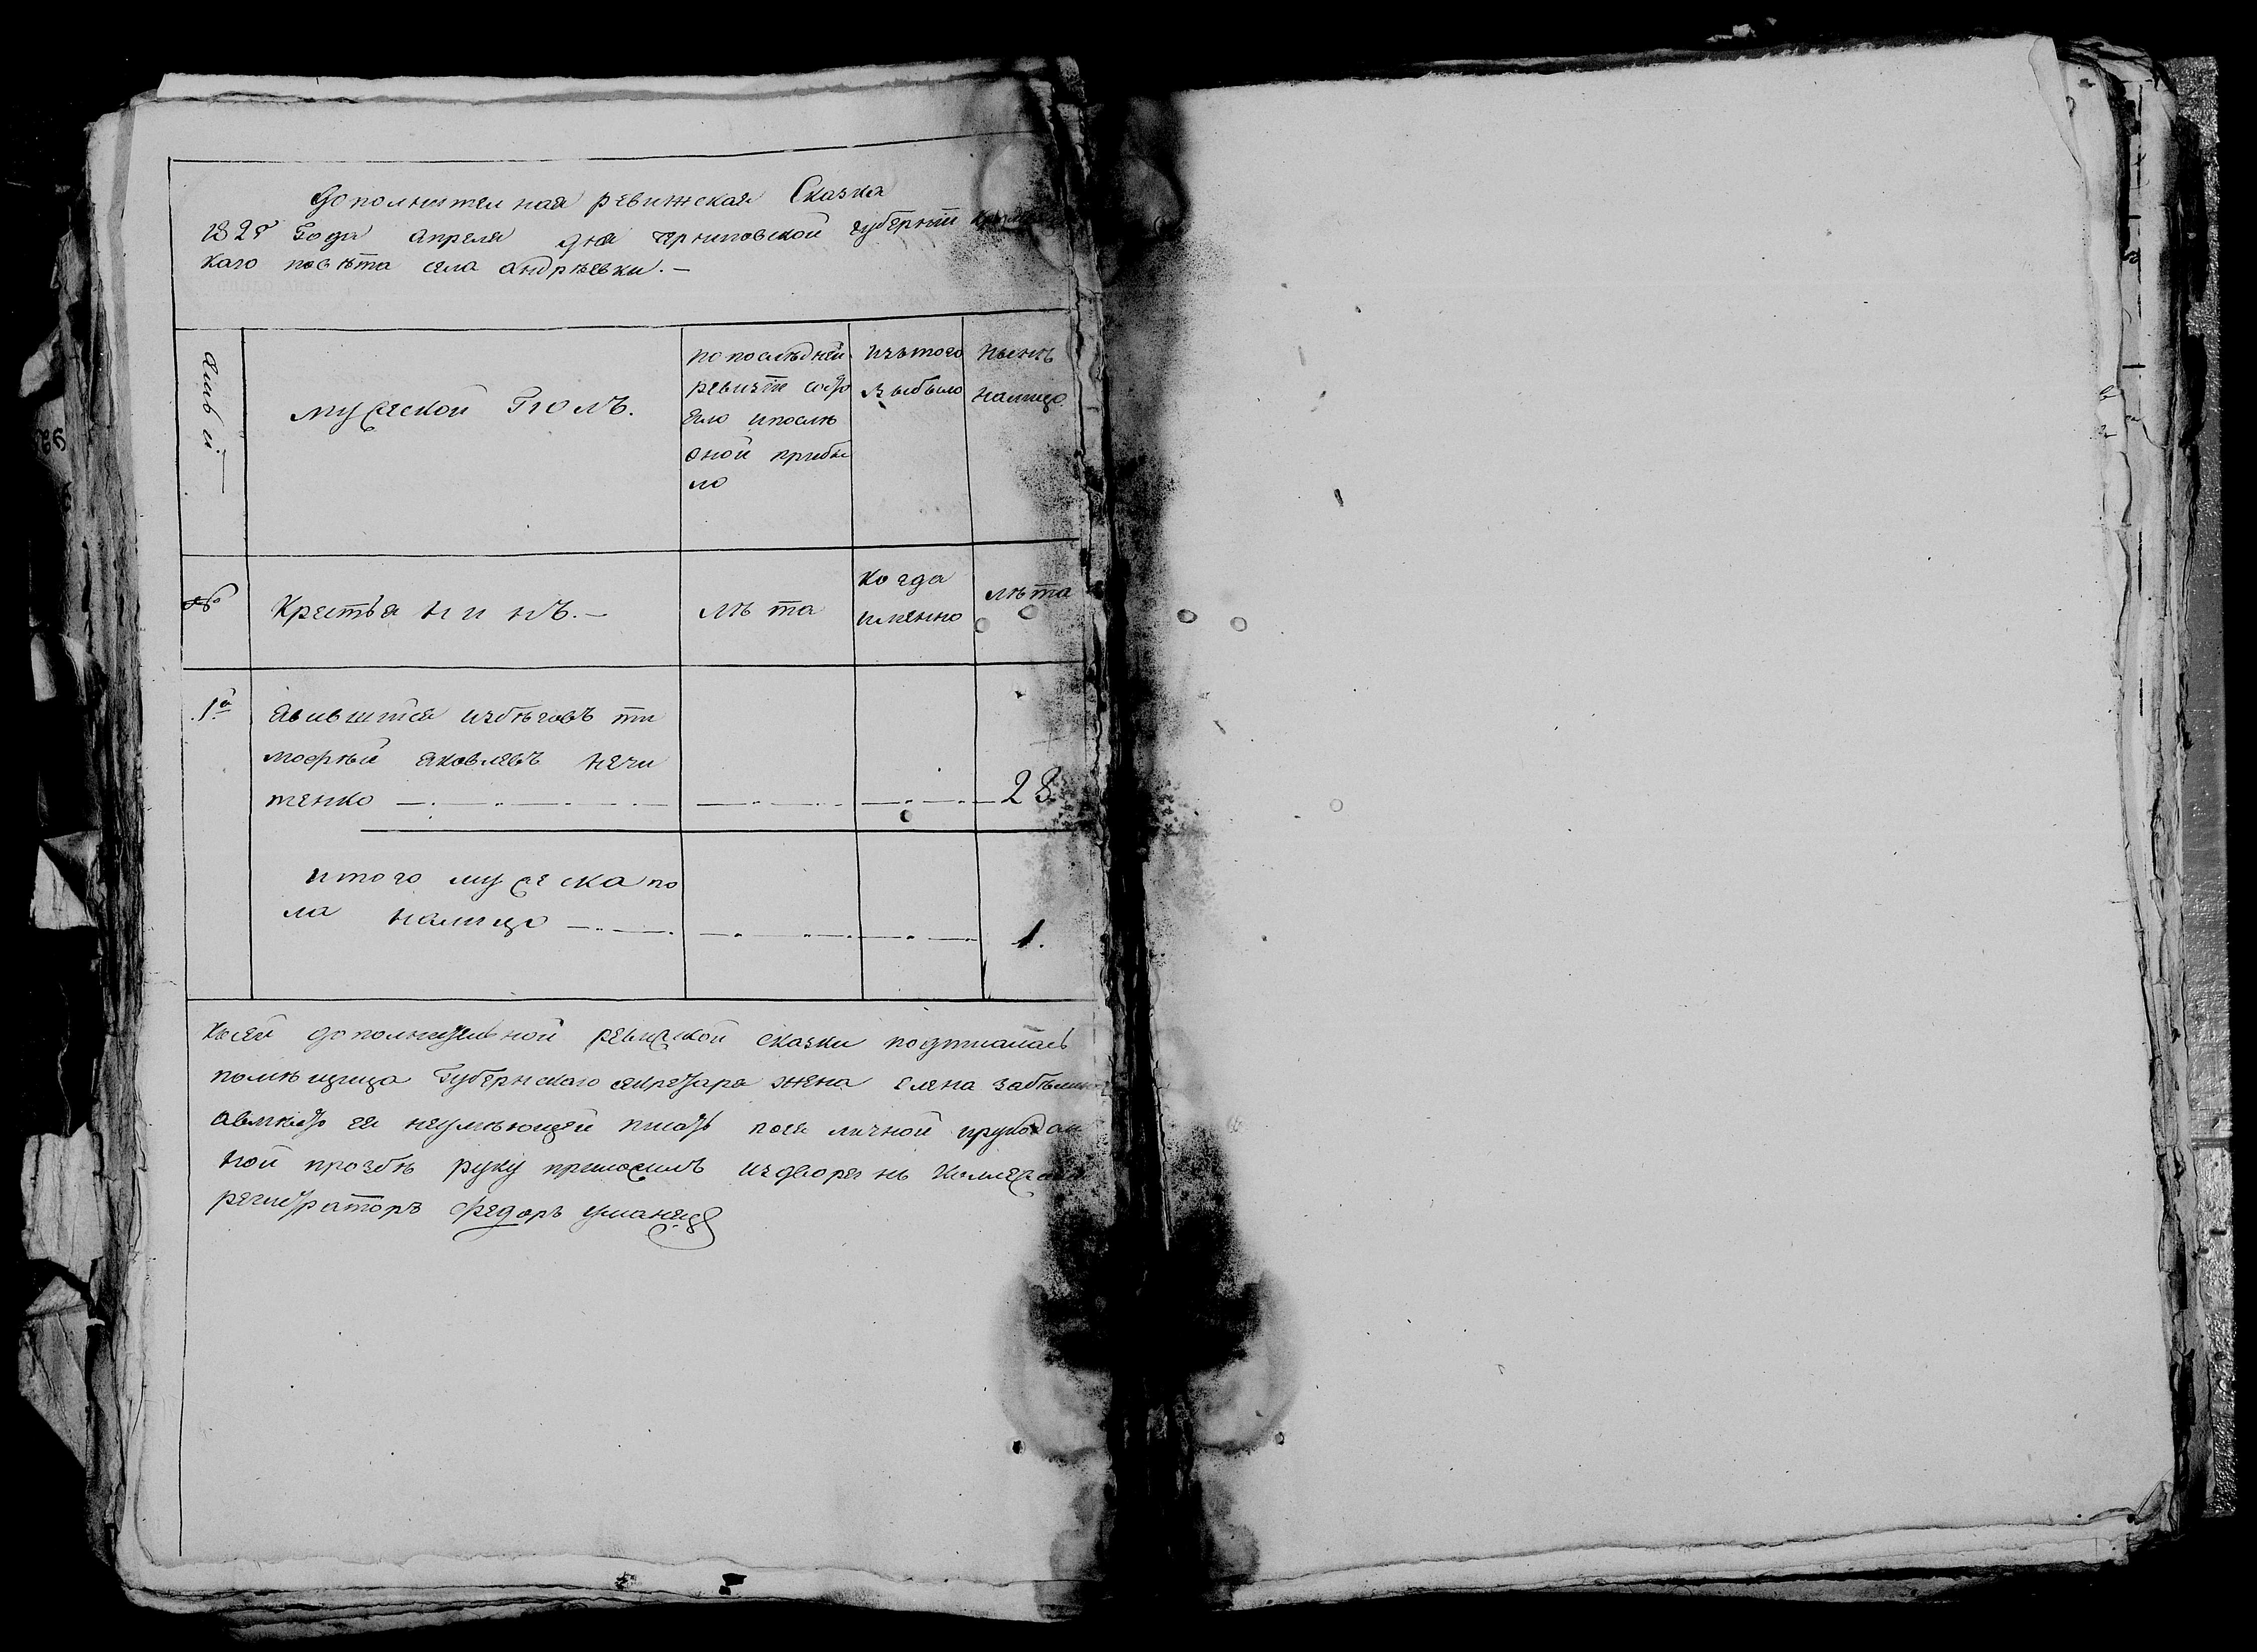 Дополнителная ревижская Сказка
182 Года апреля дня черниговской губернıи
каго повѣта села андрѣевки. —
мужеской Полъ.
по послѣдней
ревизıи состо
яло и послѣ
оной прибы
ло
изътого
выбыло
нынѣ
налицо
№
Крестьянинъ. —
лѣта
когда
именно
лѣта
1й
Явившıйся избѣговъ ти
мофѣй яковлевъ нечи
тенко
28
итого мужеска по
ла налицо
1.
Ксей дополнителной ревижской сказки подписалась
помѣщица Губернскаго секретара жена елена
авмѣсто ея неумѣющей писать поея личной ирукодан
ной прозбѣ руку приложилъ издворянъ
регистраторъ федоръ уманец